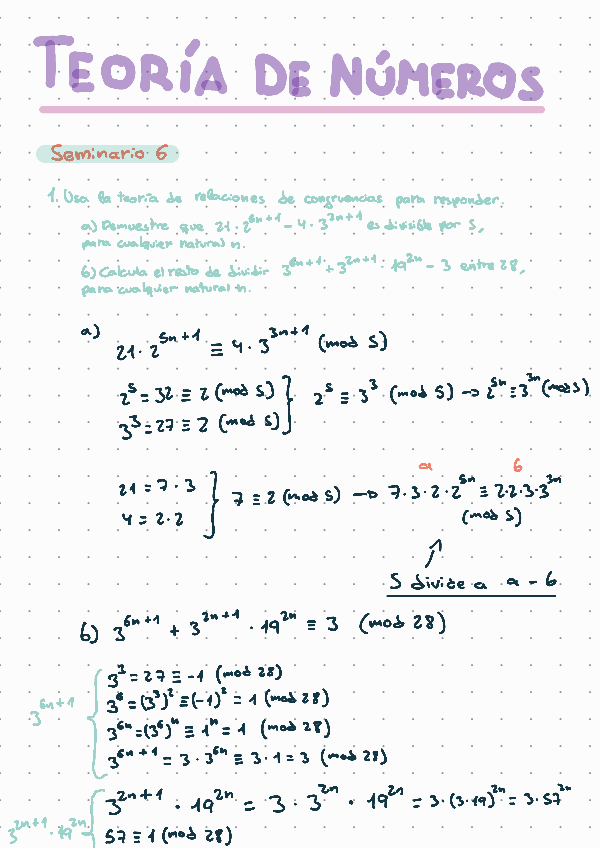 TEORÍA DE NÚMEROS
Seminario 6
1. Usa la teoría de relaciones de congruencias para responder.
a) Demuestre que 21 · 2^(5n+1) − 4 · 3^(3n+1) es divisible por 5,
para cualquier natural n.
b) Calcula el resto de dividir 3^(6n+1) + 3^(2n+1) · 19^(2n) − 3 entre 28,
para cualquier natural n.
a)
21 · 2^(5n+1) ≡ 4 · 3^(3n+1) (mod 5)
2^5 = 32 ≡ 2 (mod 5)
3^3 = 27 ≡ 2 (mod 5)
} 2^5 ≡ 3^3 (mod 5) → 2^(5n) ≡ 3^(3n) (mod 5)
a b
21 = 7 · 3
4 = 2 · 2
} 7 ≡ 2 (mod 5) → 7 · 3 · 2 · 2^(5n) ≡ 2 · 2 · 3 · 3^(3n)
(mod 5)
5 divide a a − b
b) 3^(6n+1) + 3^(2n+1) · 19^(2n) ≡ 3 (mod 28)
3^(6n+1) {
3^3 = 27 ≡ −1 (mod 28)
3^6 = (3^3)^2 ≡ (−1)^2 = 1 (mod 28)
3^(6n) = (3^6)^n ≡ 1^n = 1 (mod 28)
3^(6n+1) = 3 · 3^(6n) ≡ 3 · 1 = 3 (mod 28)
3^(2n+1) · 19^(2n) {
3^(2n+1) · 19^(2n) = 3 · 3^(2n) · 19^(2n) = 3 · (3 · 19)^(2n) = 3 · 57^(2n)
57 ≡ 1 (mod 28)